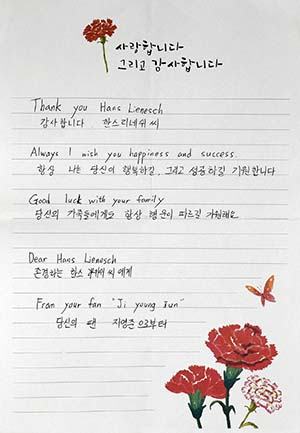 사랑합니다
그리고 감사합니다
Thank you Hans Lienesch
감사합니다 한스리네쉬 씨
Always I wish you happiness and success.
항상 나는 당신이 행복하길, 그리고 성공하길 기원합니다
Good luck with your family
당신의 가족들에게도 항상 행운이 따르길 기원해요.
Dear Hans Lienesch
존경하는 한스 씨에게
From your fan "Ji young Jun"
당신의 팬 지영준 으로부터